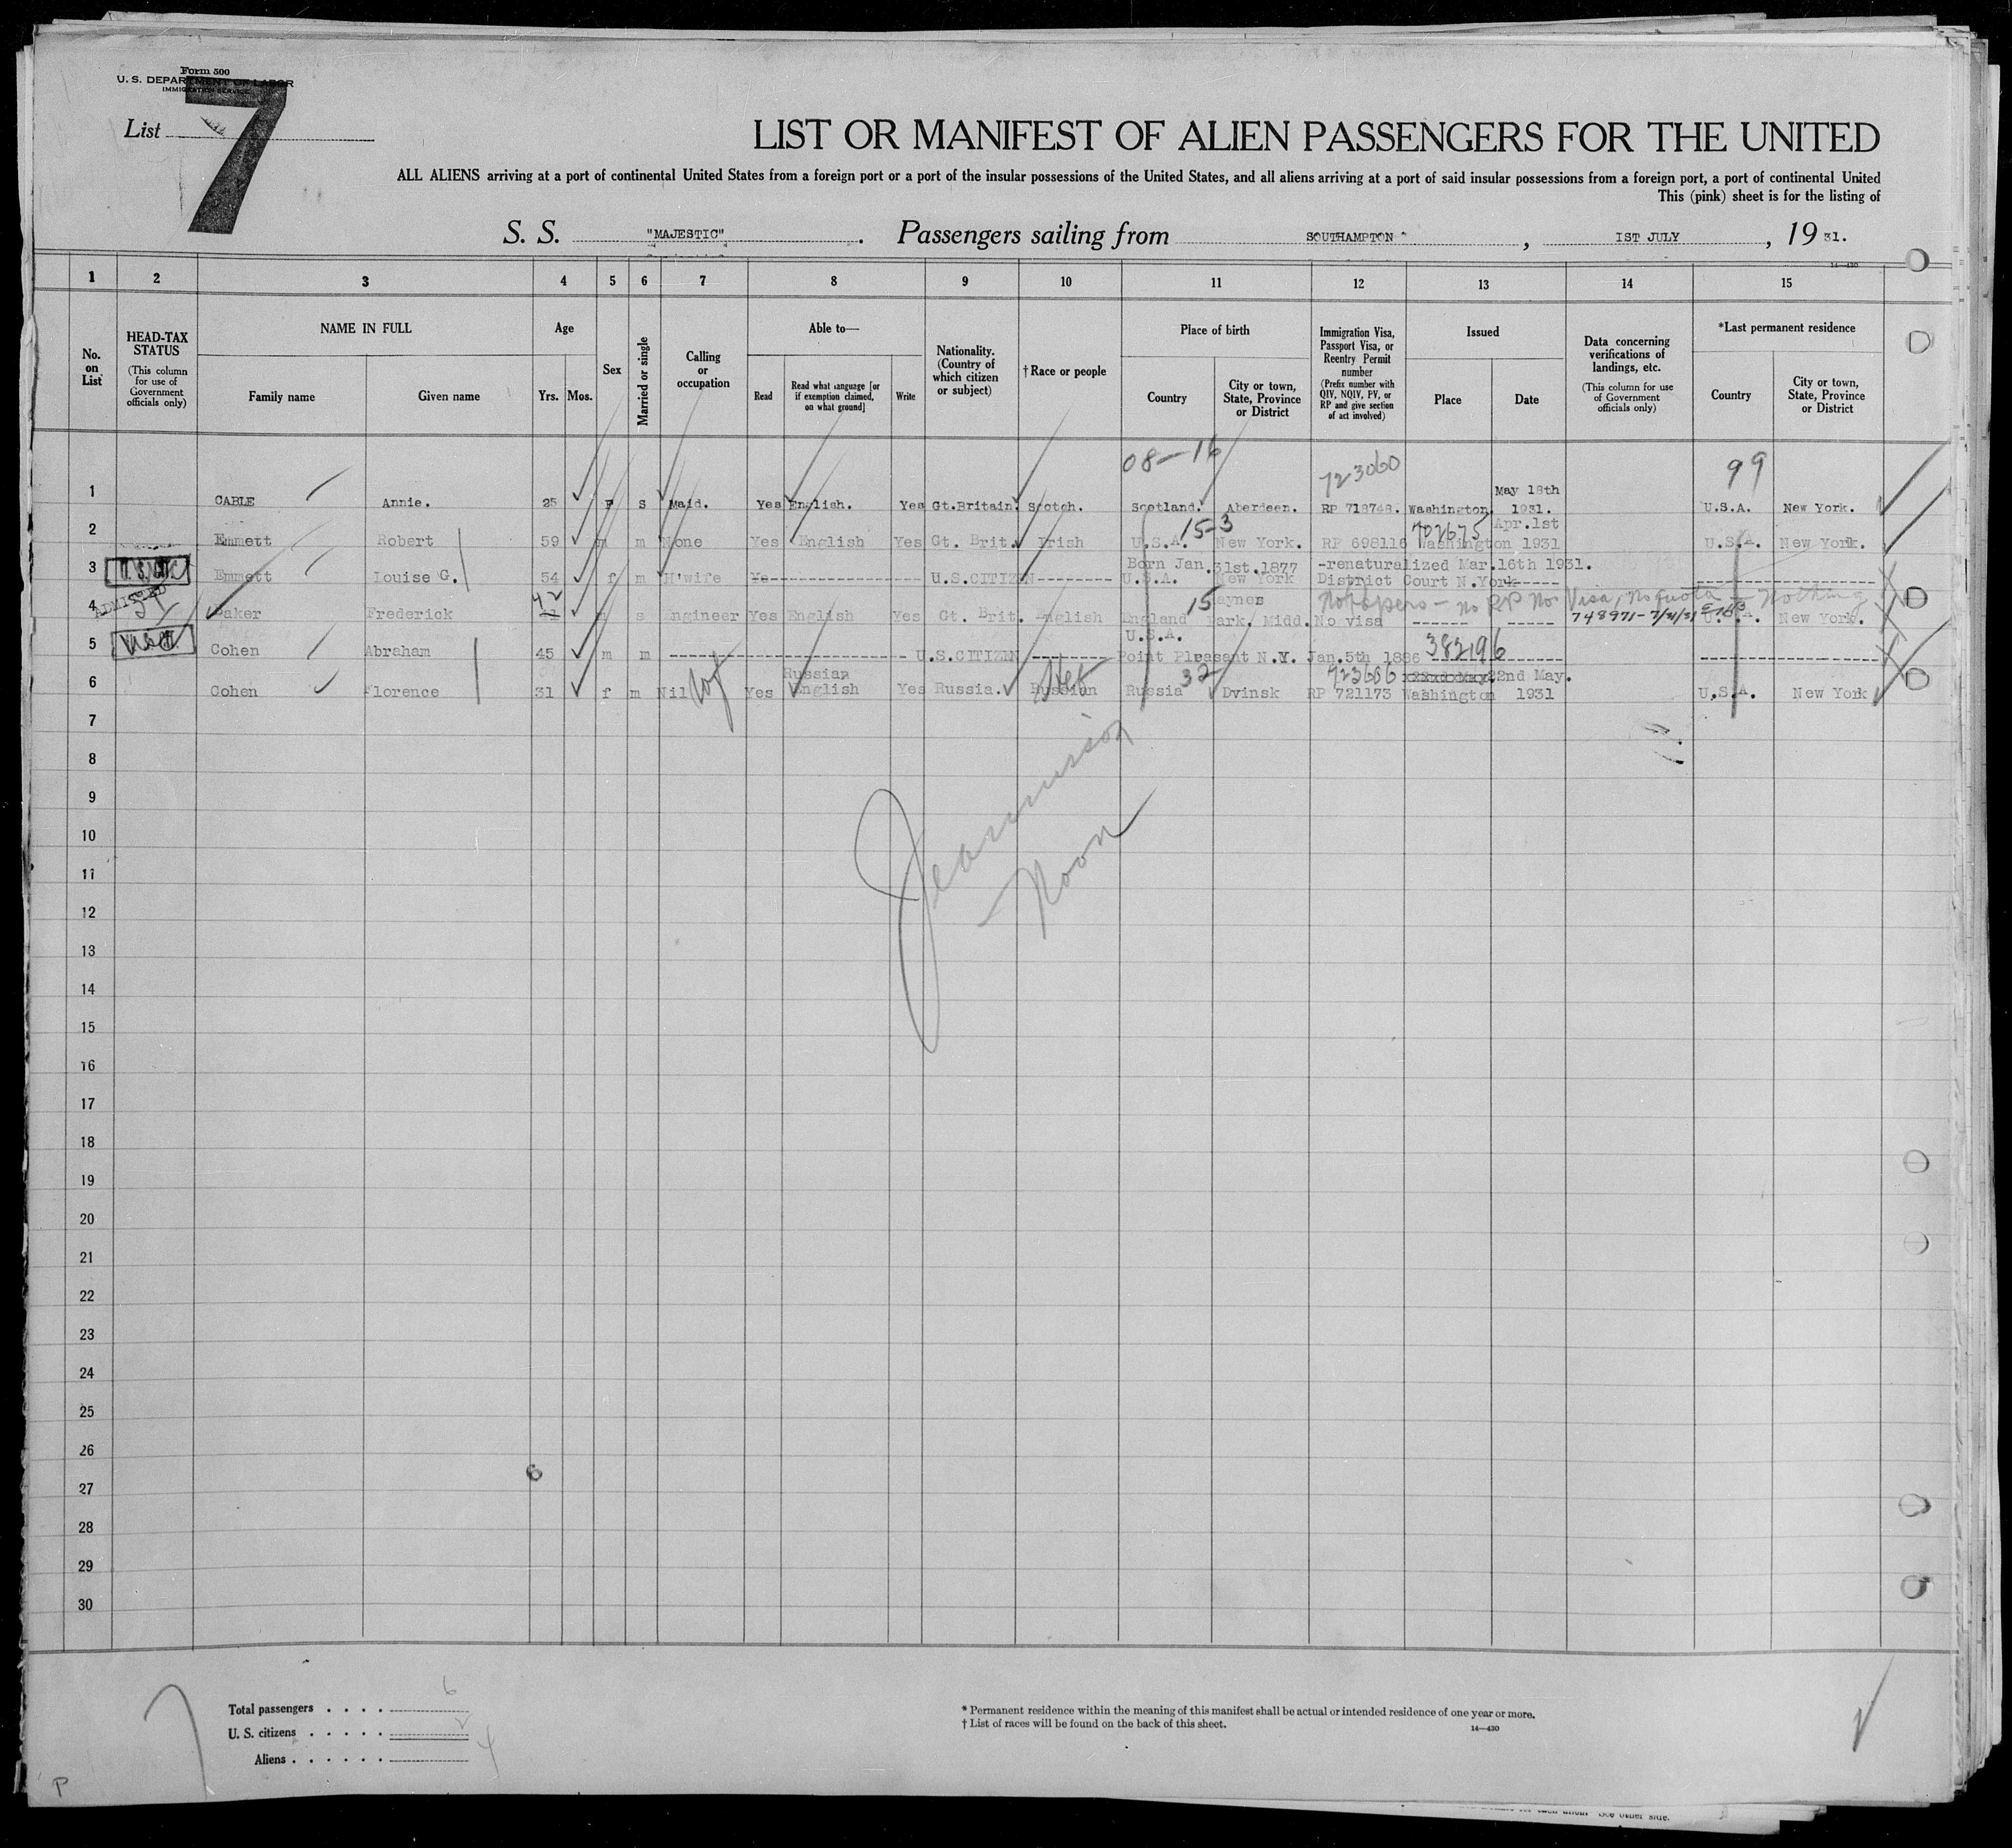 Form 500
U. S. DEPARTMENT OF LABOR
IMMIGRATION SERVICE
List 7
LIST OR MANIFEST OF ALIEN PASSENGERS FOR THE UNITED
ALL ALIENS arriving at a port of continental United States from a foreign port or a port of the insular possessions of the United States, and all aliens arriving at a port of said insular possessions from a foreign port, a port of continental United
This (pink) sheet is for the listing of
S. S. "MAJESTIC" . Passengers sailing from SOUTHAMPTON , 1ST JULY , 19 31.
14—430
1 2 3 4 5 6 7 8 9 10 11 12 13 14 15
No. on List
HEAD-TAX STATUS
(This column for use of Government officials only)
NAME IN FULL
Family name Given name
Age
Yrs. Mos.
Sex
Married or single
Calling or occupation
Able to—
Read Read what language [or if exemption claimed, on what ground] Write
Nationality. (Country of which citizen or subject)
†Race or people
Place of birth
Country City or town, State, Province or District
Immigration Visa, Passport Visa, or Reentry Permit number
(Prefix number with QIV, NQIV, PV, or RP and give section of act involved)
Issued
Place Date
Data concerning verifications of landings, etc.
(This column for use of Government officials only)
*Last permanent residence
Country City or town, State, Province or District
08—16 723060 99
May 18th
1 CABLE Annie. 25 F S Maid. Yes English. Yes Gt.Britain. Scotch. Scotland. Aberdeen. RP 718748. Washington 1931. U.S.A. New York.
15-3 702675 Apr.1st
2 Emmett Robert 59 m m None Yes English Yes Gt. Brit. Irish U.S.A. New York. RP 698116 Washington 1931 U.S.A. New York.
Born Jan.31st.1877 -renaturalized Mar.16th 1931.
3 Emmett Louise G. 54 f m H'wife Ye U.S.CITIZEN U.S.A. New York District Court N.York
ADMITTED 42 15 Haynes No papers - no RP no Visa, no quota - nothing
4 Baker Frederick m s Engineer Yes English Yes Gt. Brit. English England Park. Midd. No visa 748971-7/31/31 U.S.A. New York.
U.S.A.
5 Cohen Abraham 45 m m U.S.CITIZEN Point Pleasant N.Y. Jan.5th 1886 382196
Russian Heb 32 723606 22nd May. 22nd May.
6 Cohen Florence 31 f m Nil Yes English Yes Russia. Russian Russia Dvinsk RP 721173 Washington 1931 U.S.A. New York
7
8
9
Noon
10
11
12
13
14
15
16
17
18
19
20
21
22
23
24
25
26
6
27
28
29
30
Total passengers . . . . 6
U. S. citizens . . . . .
Aliens . . . . . . 4
* Permanent residence within the meaning of this manifest shall be actual or intended residence of one year or more.
† List of races will be found on the back of this sheet.
14—430
P
See other side.